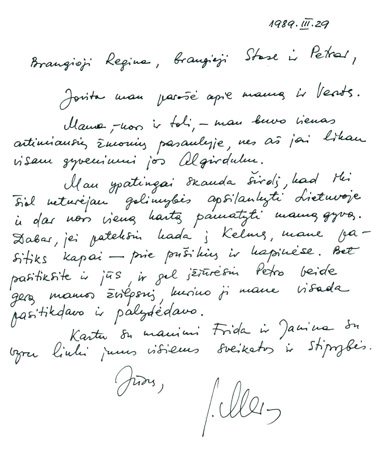 1989.III.29
Brangioji Regina, brangieji Stase ir Petrai,
Jovita man parašė apie mamą ir Verutę.
Mama, – nors ir toli, – man buvo vienas
artimiausių žmonių pasaulyje, nes aš jai likau
visam gyvenimui jos Algirduku.
Man ypatingai skauda širdį, kad iki
šiol neturėjau galimybės apsilankyti Lietuvoje
ir dar nors vieną kartą pamatyti mamą gyvą.
Dabar, jei pateksiu kada į Kelmę, mane pa-
sitiks kapai – prie pušikių ir kapinėse. Bet
pasitiksite ir jūs, ir gal įžiūrėsiu Petro veide
gerą mamos žvilgsnį, kuriuo ji mane visada
pasitikdavo ir palydėdavo.
Kartu su manimi Frida ir Janina su
vyru linki jums visiems sveikatos ir stiprybės.
Jūsų,